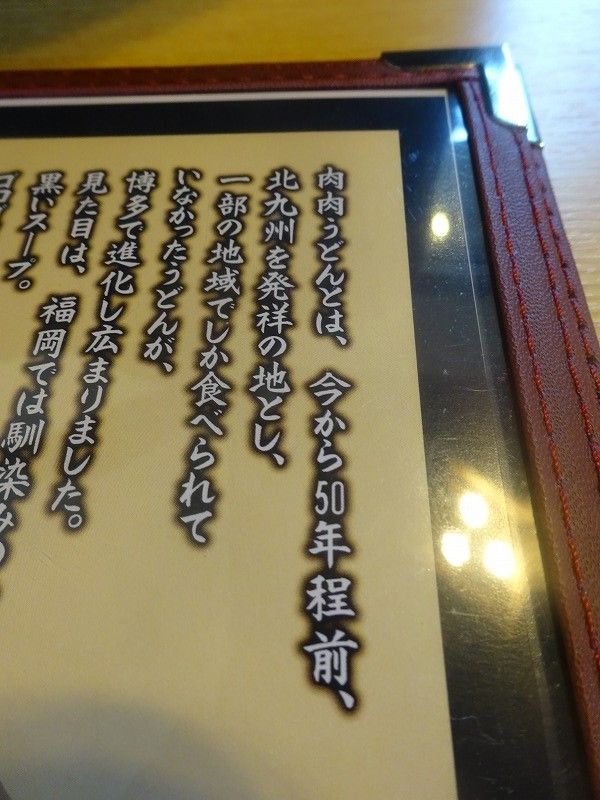 肉肉うどんとは、今から50年程前、
北九州を発祥の地とし、
一部の地域でしか食べられて
いなかったうどんが、
博多で進化し広まりました。
見た目は、福岡では馴染みの
黒いスープ。